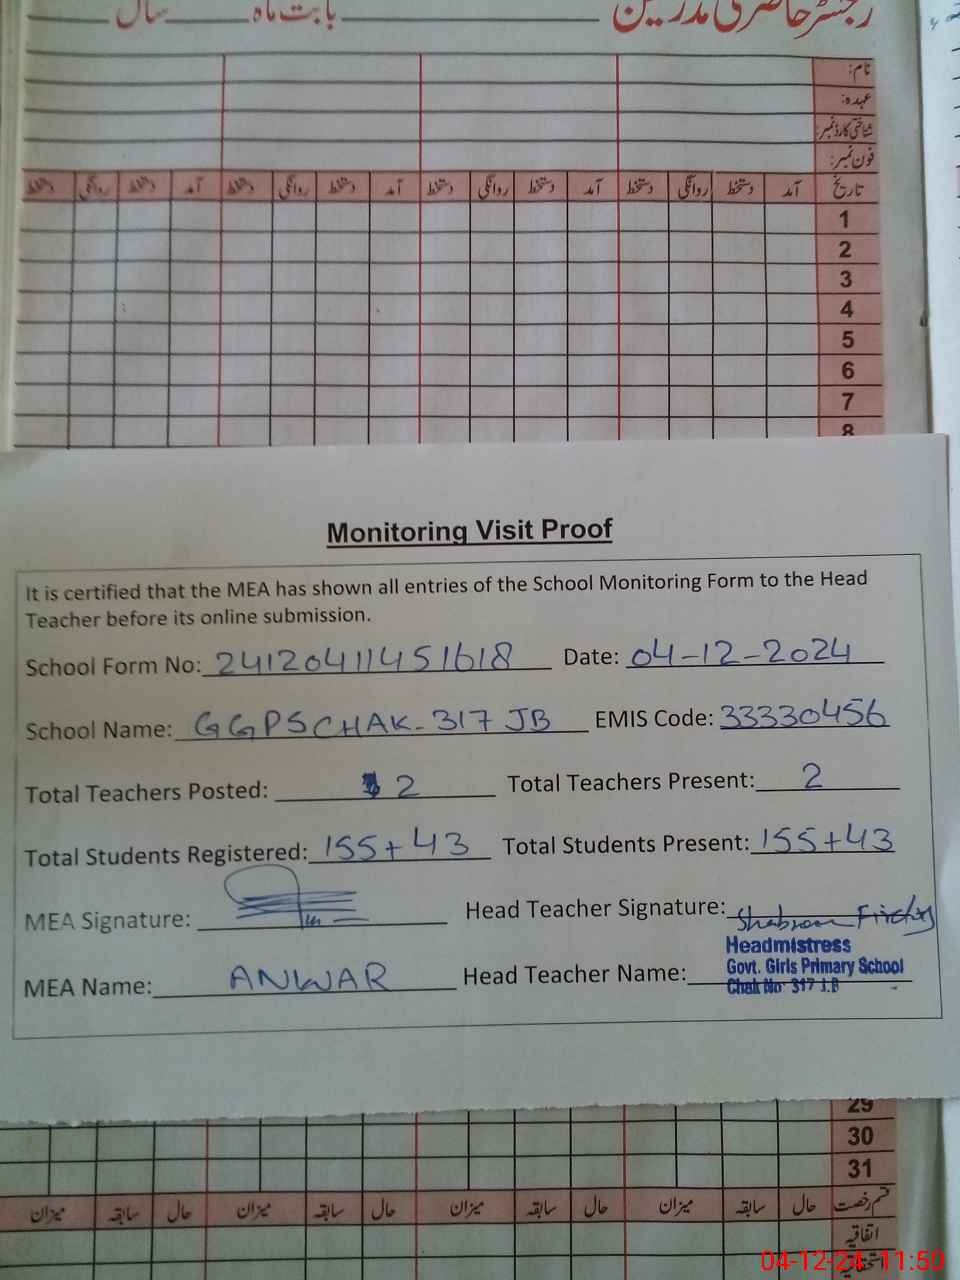 رجسٹر حاضری مدرسین ــــــ بابت ماہ ــــــ سال ــــــ
نام:
عہدہ:
شناختی کارڈ نمبر:
فون نمبر:
تاریخ آمد دستخط روانگی دستخط آمد دستخط روانگی دستخط آمد دستخط روانگی دستخط آمد دستخط روانگی دستخط
1
2
3
4
5
6
7
8
Monitoring Visit Proof
It is certified that the MEA has shown all entries of the School Monitoring Form to the Head
Teacher before its online submission.
School Form No: 24120411451618 Date: 04-12-2024
School Name: GGPS CHAK-317 JB EMIS Code: 33330456
Total Teachers Posted: 2 Total Teachers Present: 2
Total Students Registered: 155+43 Total Students Present: 155+43
MEA Signature: Head Teacher Signature: Shabnam
MEA Name: ANWAR Head Teacher Name:
Headmistress
Govt. Girls Primary School
Chak No 317 J.B
29
30
31
قسم رخصت حال سابقہ میزان حال سابقہ میزان حال سابقہ میزان حال سابقہ میزان
اتفاقیہ
استحقاقیہ
04-12-24 11:50